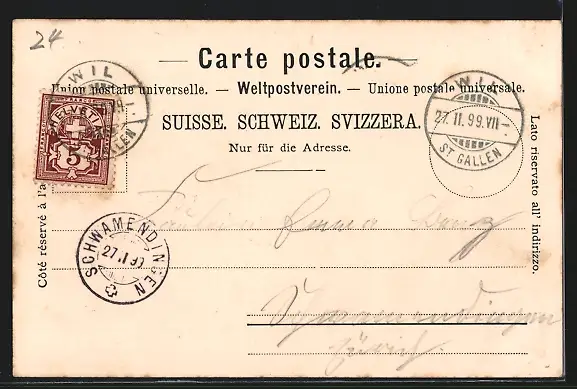 24
Carte postale.
Union postale universelle. — Weltpostverein. — Unione postale universale.
SUISSE. SCHWEIZ. SVIZZERA.
Nur für die Adresse.
WIL
ST GALLEN
HELVETIA
5
WIL
27.II.99.VII-
ST GALLEN
Côté réservé à l'a
Lato riservato all' indirizzo.
Fräulein Emma
SCHWAMENDINGEN
Schwamendingen
Zürich.